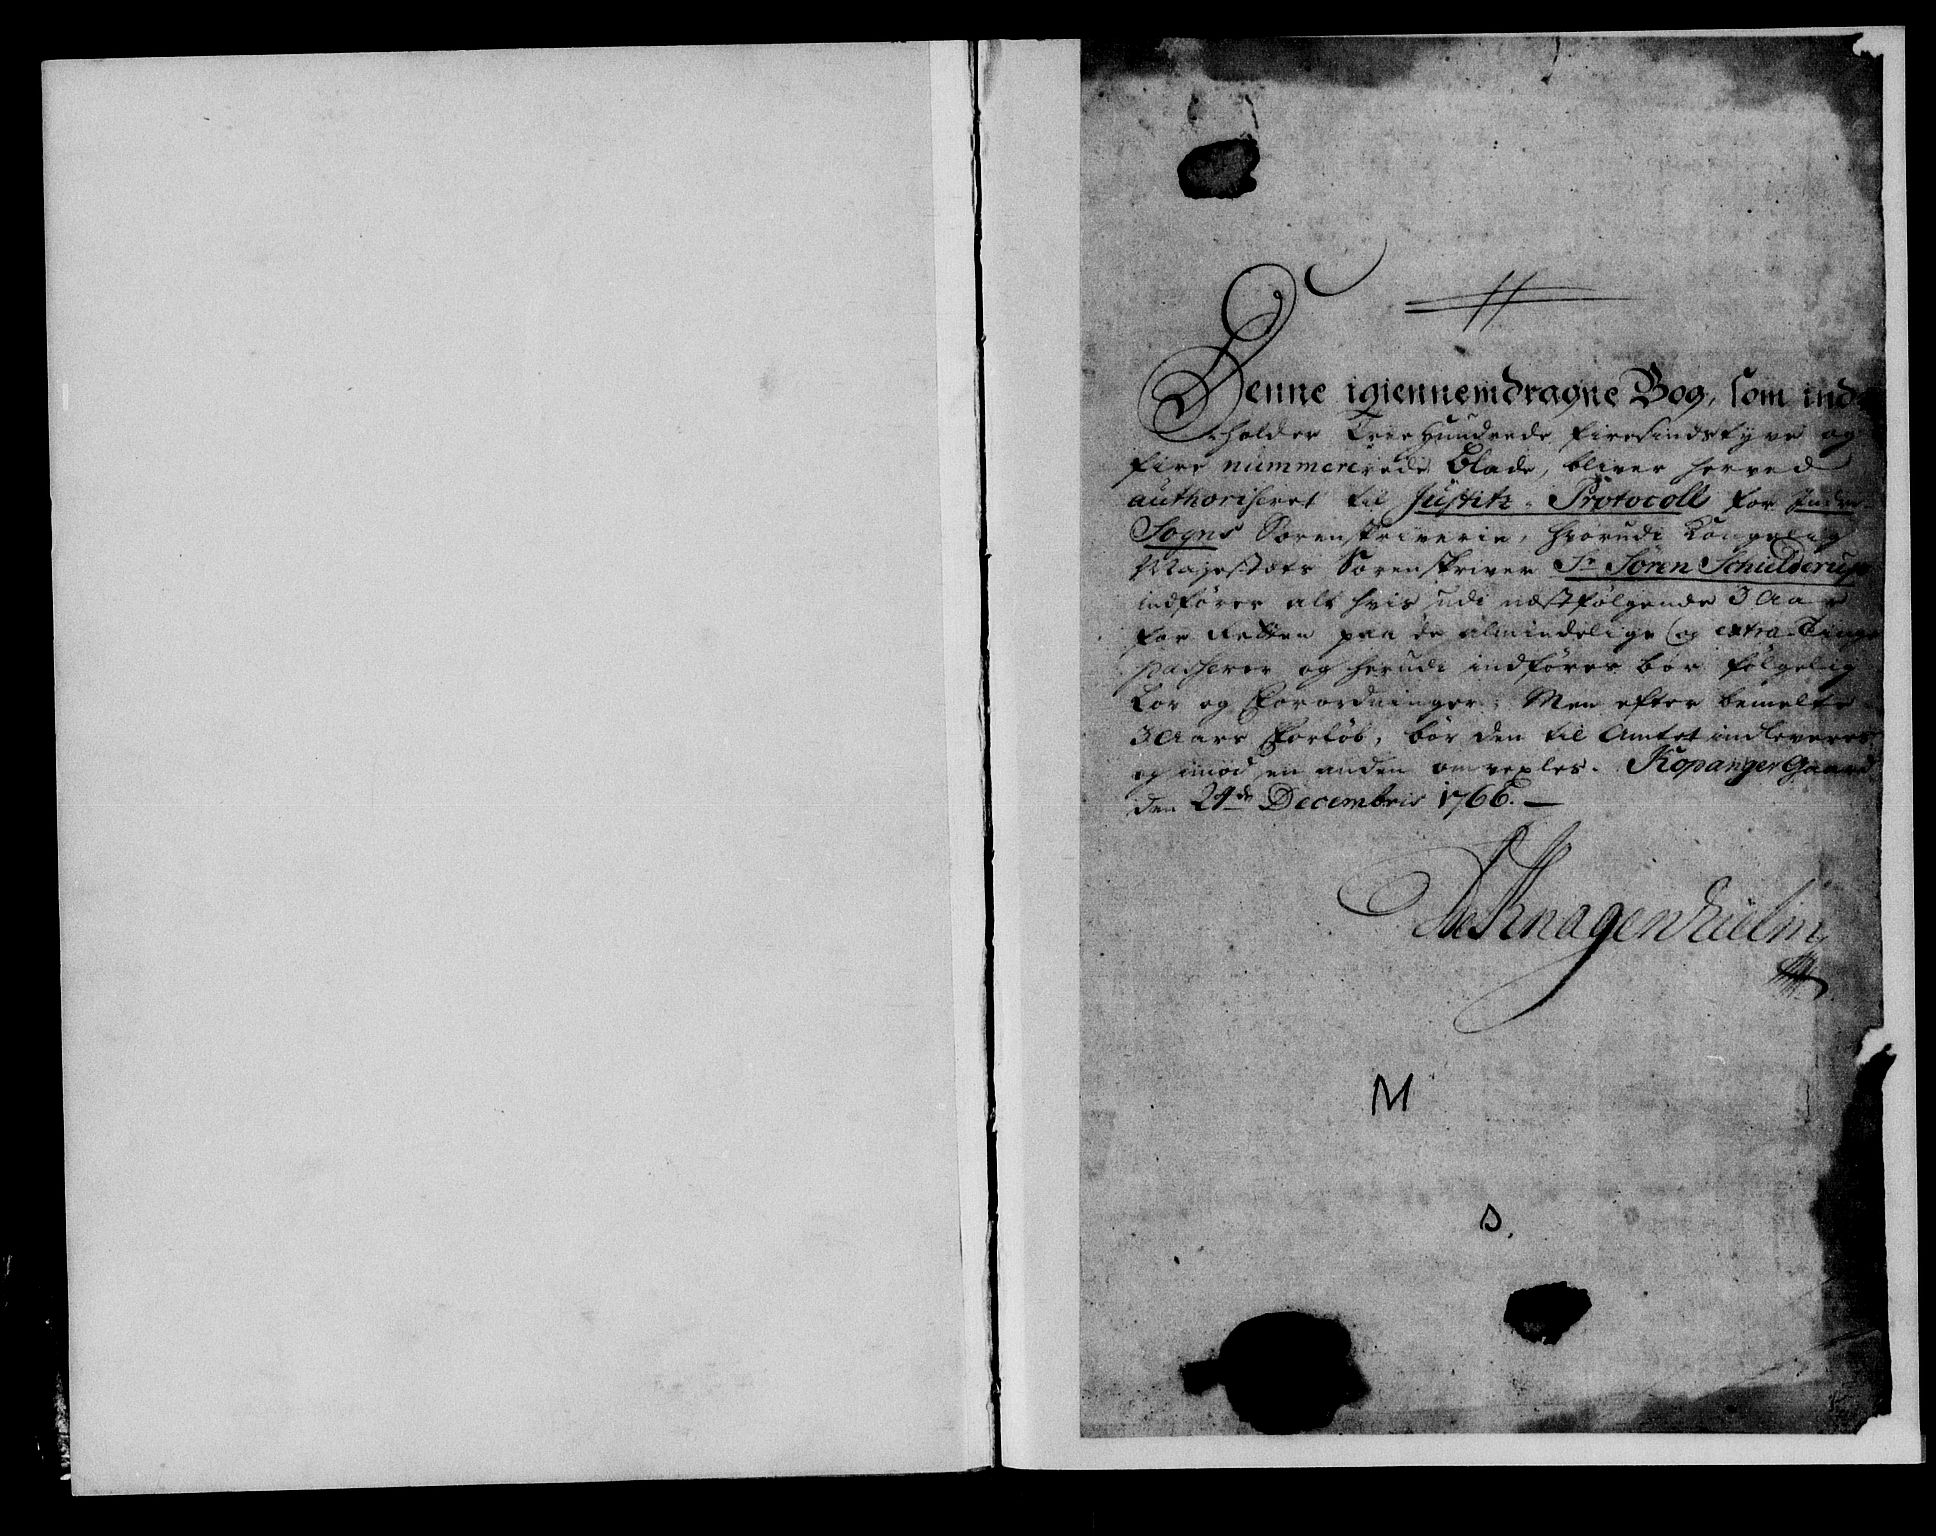 Denne igiennemdragne Bog, som ind-
holder Tree Hundrede, firesindstyve og
fire nummererede Blade, bliver herved
authoriseret til Justitz-Protocoll for Indre-
Sogns Sorenskriverie, hvorudi Kongelig
Mayestæts Sorenskriver Sr. Sören Schielderup
indfører alt hvis udi næstfølgende 3 Aar
for Retten paa de almindelige og extra-Ting
passerer og herudi indføres bør følgelig
Lov og Forordninger; Men efter bemelte
3 Aars Forløb, bør den til Amtet indleveres
og imod en anden omvexles. Kopanger Gaard
den 24de Decembris 1766.
Knagenhielm
M
S.